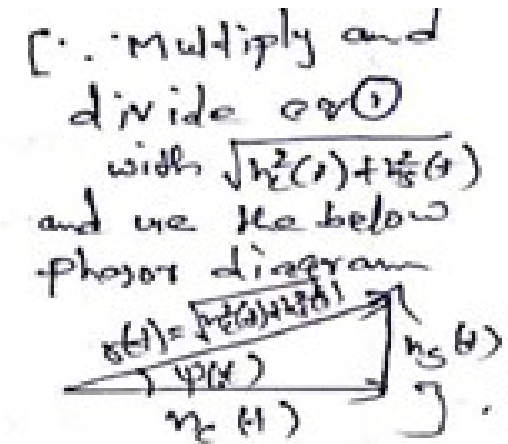 [∵ Multiply and
divide eq①
with √(n_c²(t) + n_s²(t))
and use the below
phasor diagram
r(t) = √(n_c²(t) + n_s²(t))
n_s(t)
ψ(t)
n_c(t) ].